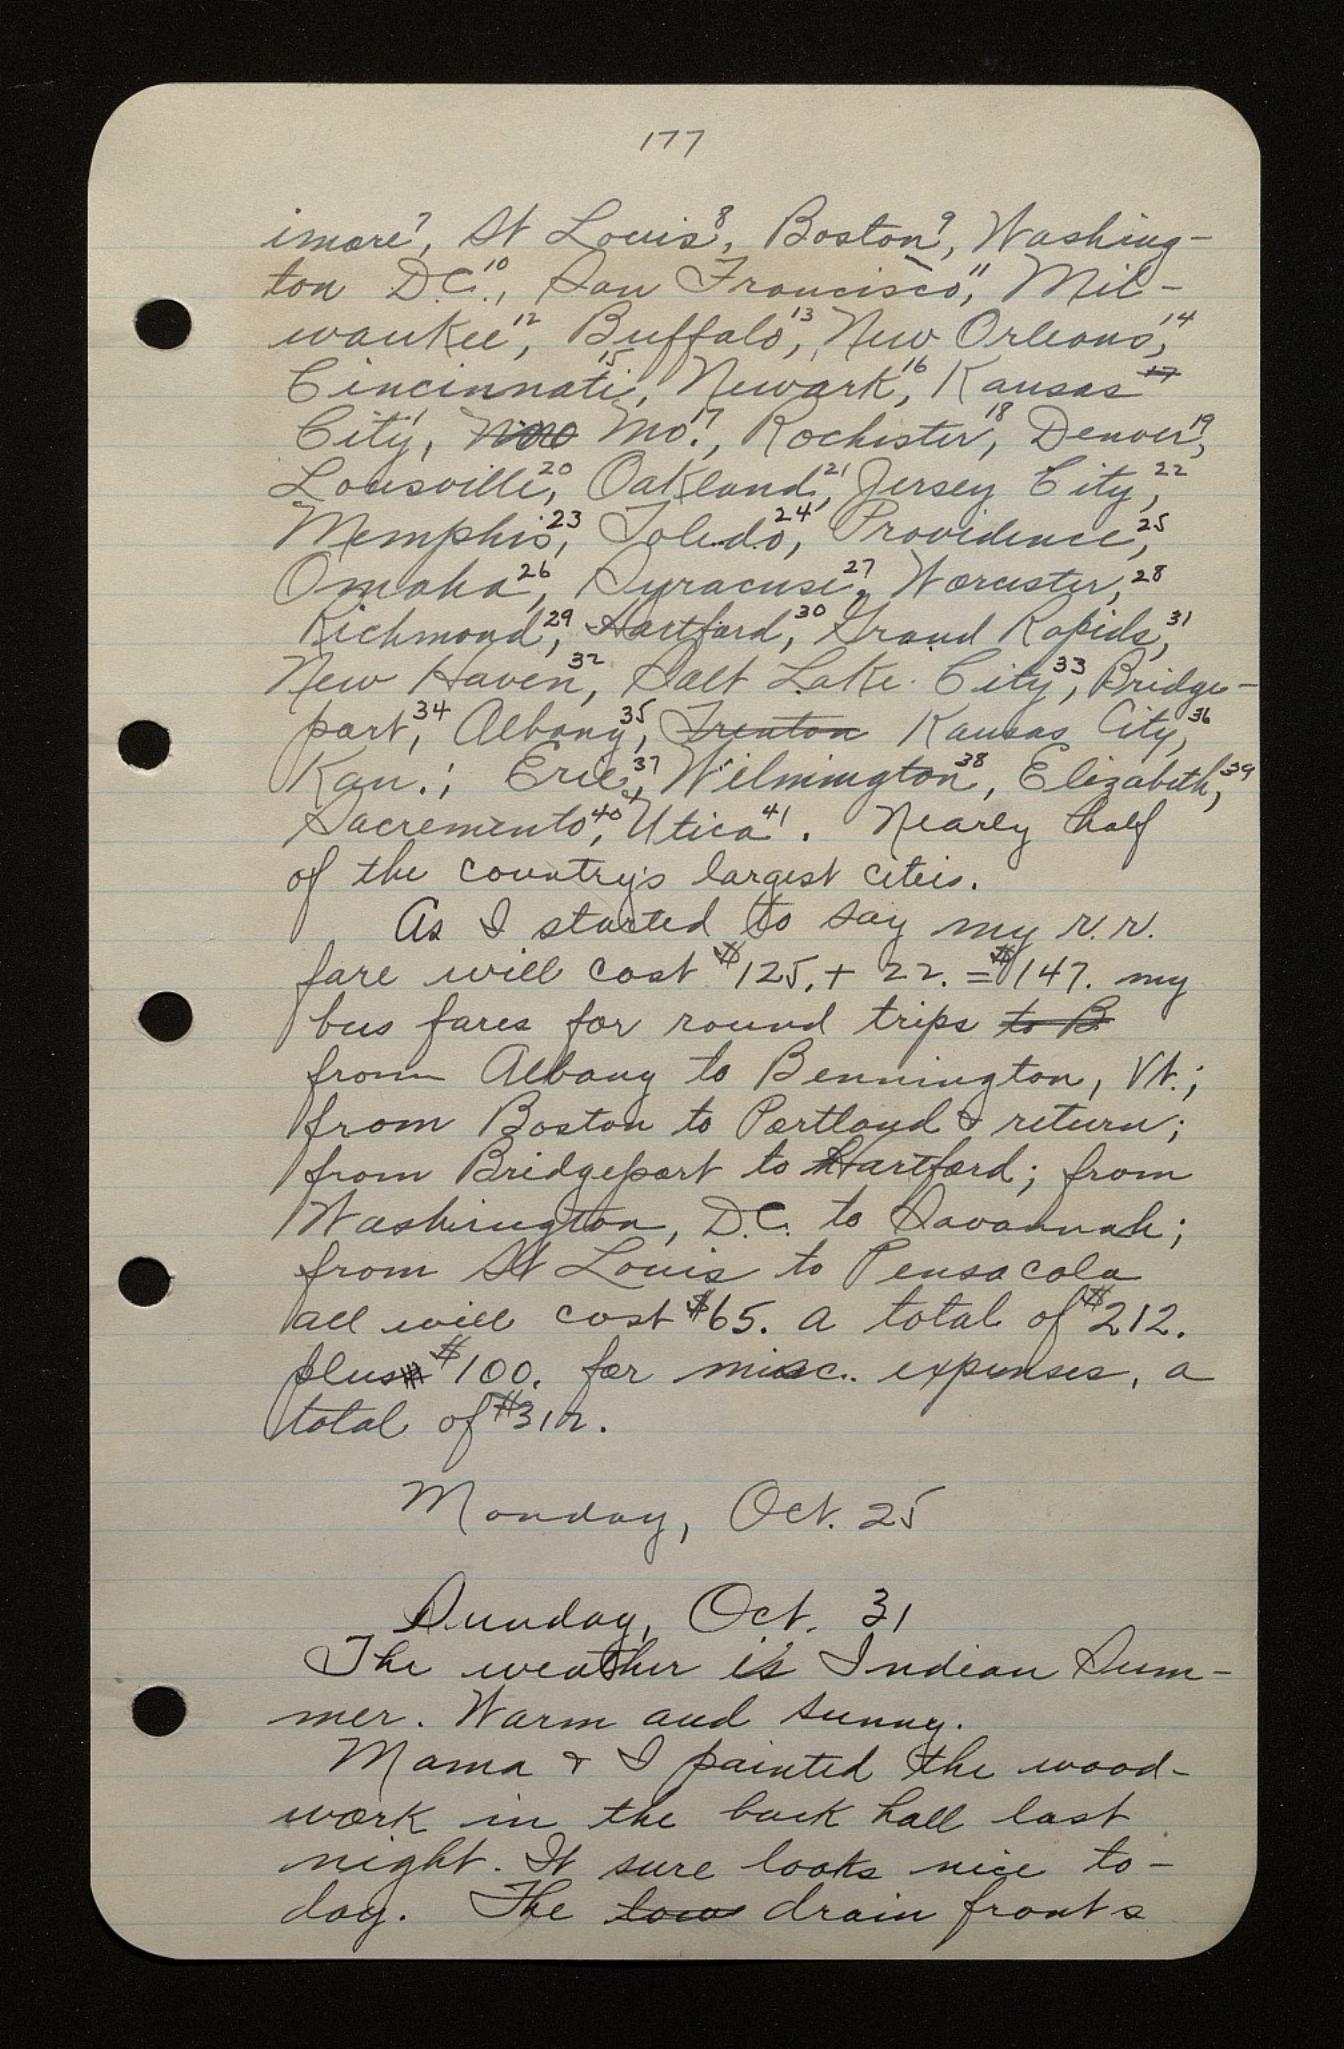 177
imore⁷, St Louis⁸, Boston⁹, Washing-
ton D.C.¹⁰, San Francisco¹¹, Mil-
waukee¹², Buffalo¹³, New Orleans¹⁴,
Cincinnati¹⁵, Newark¹⁶, Kansas ~~17~~
City, Mo.¹⁷, Rochester¹⁸, Denver¹⁹,
Lousville²⁰, Oakland²¹, Jersey City²²,
Memphis²³, Toledo²⁴, Providence²⁵,
Omaha²⁶, Syracuse²⁷, Worcester²⁸,
Richmond²⁹, Hartford³⁰, Grand Rapids³¹,
New Haven³², Salt Lake City³³, Bridge-
port³⁴, Albany³⁵, ~~Trenton~~ Kansas City³⁶,
Kan.; Erie³⁷, Wilmington³⁸, Elizabeth³⁹,
Sacremento⁴⁰, Utica⁴¹. Nearly half
of the country's largest cities.
As I started to say my r.r.
fare will cost $125. + 22. = $147. my
bus fares for round trips ~~to B~~
from Albany to Bennington, Vt.;
from Boston to Portland & return;
from Bridgeport to Hartford; from
Washington, D.C. to Savannah;
from St Louis to Pensacola
all will cost $65. a total of $212.
plus $100. for misc. expenses, a
total of $312.
Monday, Oct. 25
Sunday, Oct. 31
The weather is Indian Sum-
mer. Warm and sunny.
Mama & I painted the wood-
work in the back hall last
night. It sure looks nice to-
day. The drain fronts